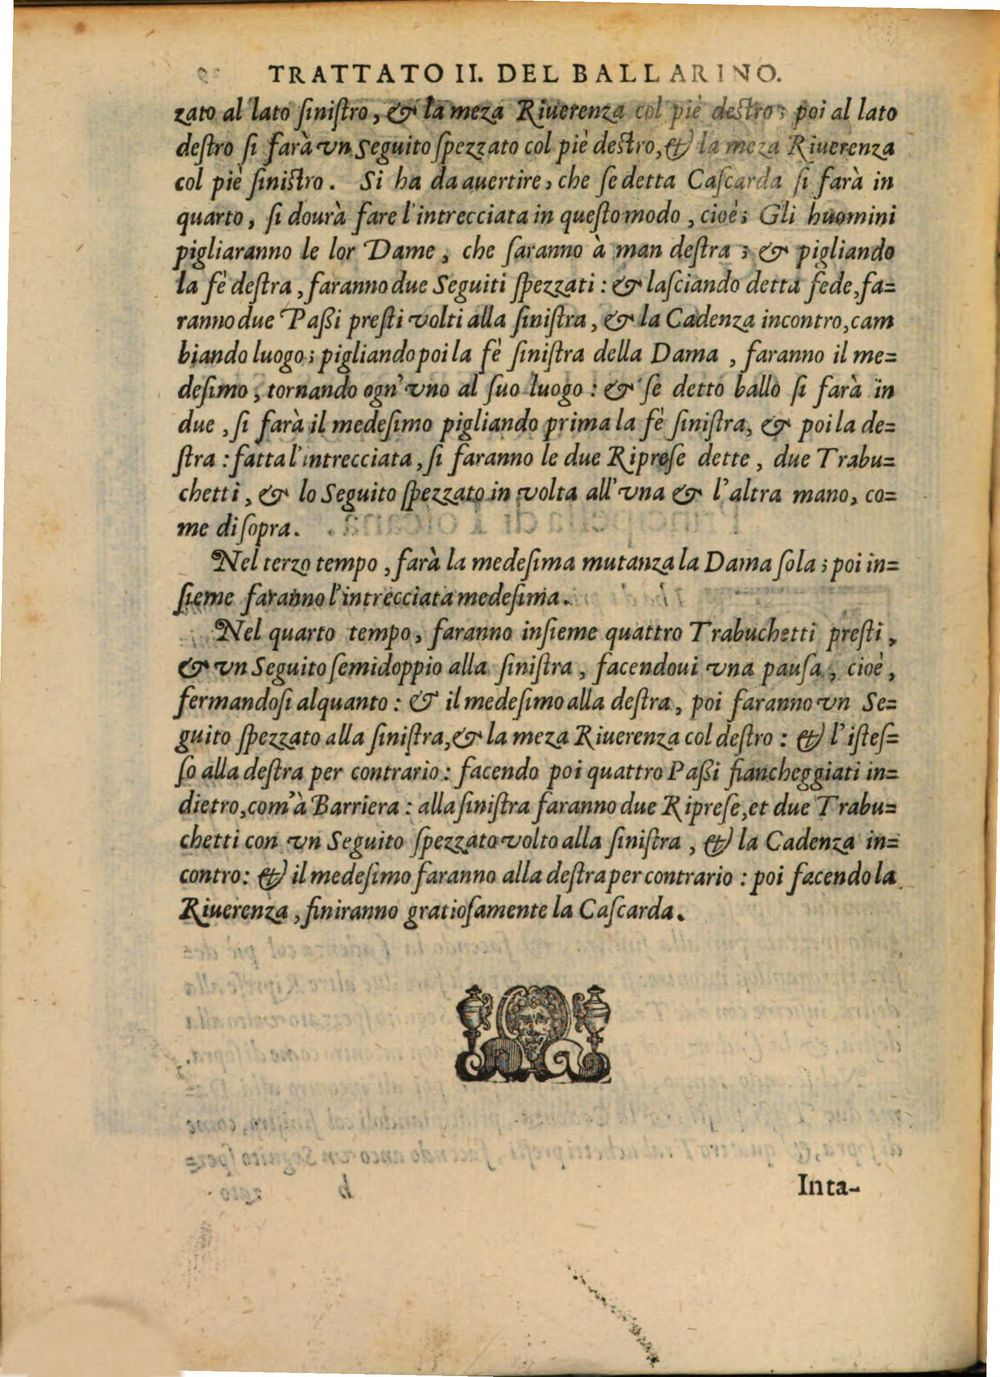 TRATTATO II. DEL BALLARINO.
zato al lato ſiniſtro, & la meza Riuerenza col piè deſtro; poi al lato
deſtro ſi farà vn Seguito ſpezzato col piè deſtro, & la meza Riuerenza
col piè ſiniſtro. Si ha da auertire, che ſe detta Caſcarda ſi farà in
quarto, ſi dourà fare l'intrecciata in queſto modo, cioè; Gli huomini
pigliaranno le lor Dame, che ſaranno à man deſtra; & pigliando
la fè deſtra, faranno due Seguiti ſpezzati: & laſciando detta fede, fa=
ranno due Paßi preſti volti alla ſiniſtra, & la Cadenza incontro, cam
biando luogo; pigliando poi la fè ſiniſtra della Dama, faranno il me=
deſimo, tornando ogn'vno al ſuo luogo: & ſe detto ballo ſi farà in
due, ſi farà il medeſimo pigliando prima la fè ſiniſtra, & poi la de=
ſtra: fatta l'intrecciata, ſi faranno le due Ripreſe dette, due Trabu=
chetti, & lo Seguito ſpezzato in volta all'vna & l'altra mano, co=
me di ſopra.
Nel terzo tempo, farà la medeſima mutanza la Dama ſola; poi in=
ſieme faranno l'intrecciata medeſima.
Nel quarto tempo, faranno inſieme quattro Trabuchetti preſti,
& vn Seguito ſemidoppio alla ſiniſtra, facendoui vna pauſa, cioè,
fermandoſi alquanto: & il medeſimo alla deſtra, poi faranno vn Se=
guito ſpezzato alla ſiniſtra, & la meza Riuerenza col deſtro: & l'iſteſ=
ſo alla deſtra per contrario: facendo poi quattro Paßi fiancheggiati in=
dietro, com'à Barriera: alla ſiniſtra faranno due Ripreſe, et due Trabu=
chetti con vn Seguito ſpezzato volto alla ſiniſtra, & la Cadenza in=
contro: & il medeſimo faranno alla deſtra per contrario: poi facendo la
Riuerenza, finiranno gratioſamente la Caſcarda.
Inta-